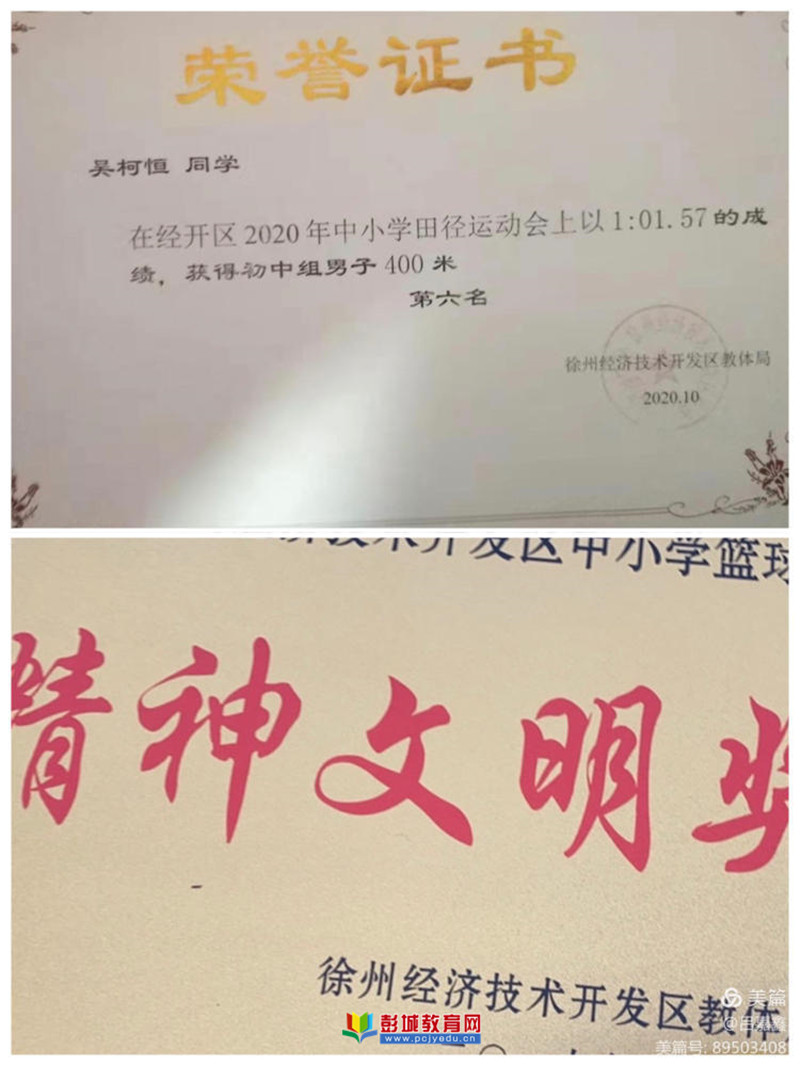 荣誉证书
吴柯恒 同学
在经开区2020年中小学田径运动会上以1:01.57的成
绩，获得初中组男子400米
第六名
徐州经济技术开发区教体局
2020.10
济技术开发区中小学篮球
精神文明奖
徐州经济技术开发区教体
彭城教育网
www.pcjyedu.cn
美篇
美篇号: 89503408